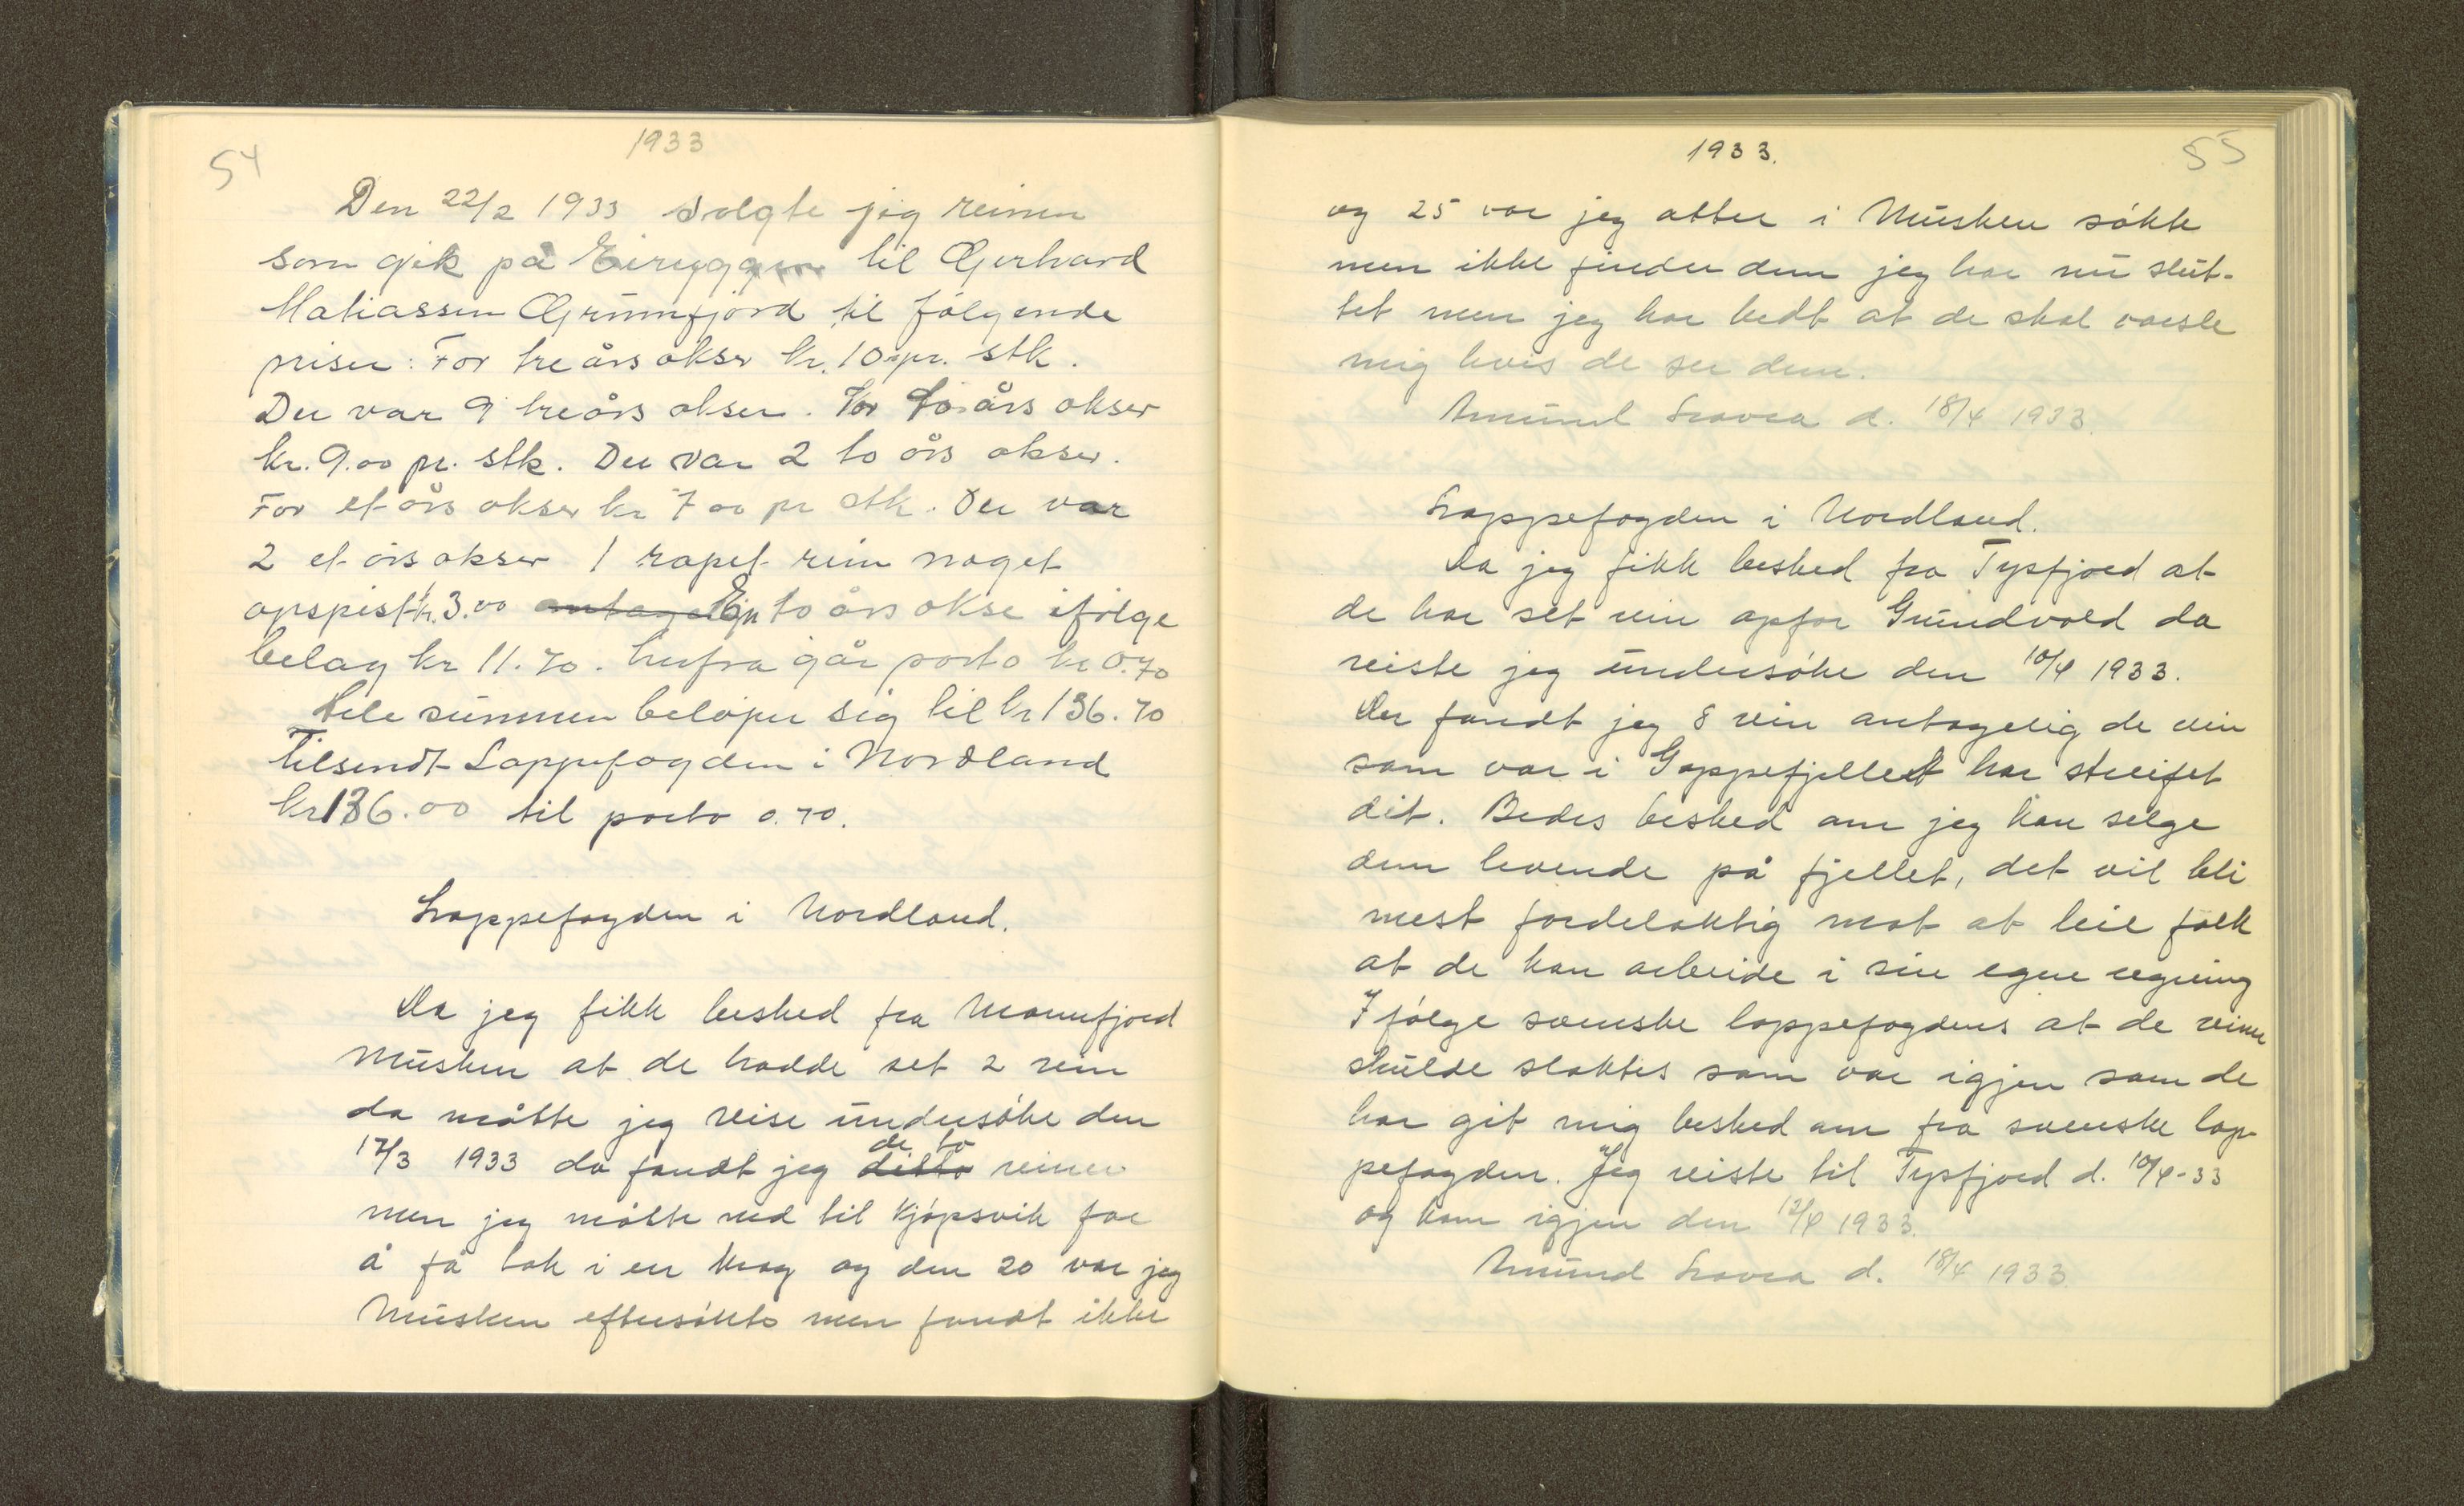 54
1933
Den 22/2 1933 solgte jeg reinen
som gik på Eiryggen til Gerhard
Matiassen Grunnfjord til følgende
priser: For tre års okser kr. 10 pr. stk.
Der var 9 treårs okser. For to års okser
kr. 9.00 pr. stk. Der var 2 to års okser.
For et års okser kr 7 00 pr stk. Der var
2 et års okser 1 rapet rein noget
opspist kr. 3.00 antagelig En to års okse ifølge
belag kr 11.70. herfra går porto kr 0.70
Hele summen beløper sig til kr 136.70
Tilsendt Lappefogden i Nordland
kr 136.00 til porto 0.70.
Lappefogden i Nordland.
Da jeg fikk besked fra Mannfjord
Musken at de hadde set 2 rein
da måtte jeg reise undersøke den
17/3 1933 da fandt jeg ditto de to reiner
men jeg måtte ned til Kjøpsvik for
å få tak i en Krag og den 20 var jeg
Musken eftersøkte men fandt ikke
55
1933.
og 25 var jeg atter i Musken søkte
men ikke finder dem jeg har nu slut-
tet men jeg har bedt at de skal varsle
mig hvis de ser dem.
Amund Lavra d. 18/4 1933.
Lappefogden i Nordland.
Da jeg fikk besked fra Tysfjord at
de har set rein opfor Grundvold da
reiste jeg undersøke den 10/4 1933.
Der fandt jeg 8 rein antagelig de rein
som var i Gappefjellet har streifet
dit. Bedes besked om jeg kan selge
dem levende på fjellet, det vil bli
mest fordelaktig mot at leie folk
at de kan arbeide i sin egen regning
Ifølge svenske lappefogdens at de reiner
skulde slaktes som var igjen som de
har git mig besked om fra svenske lap-
pefogden. Jeg reiste til Tysfjord d. 10/4-33
og kom igjen den 12/4 1933.
Amund Lavra d. 18/4 1933.